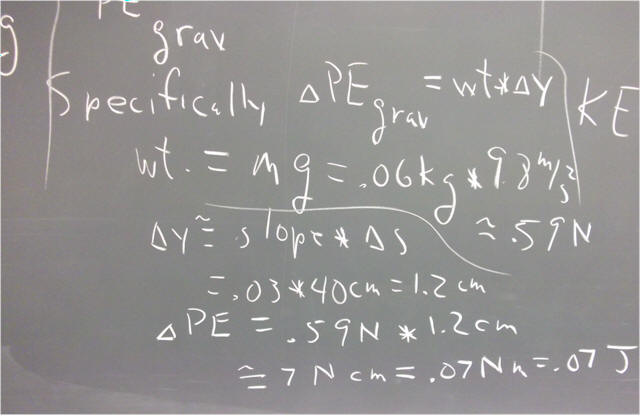 g PE
grav
Specifically ΔPE grav = wt*Δy KE
wt. = mg = .06kg * 9.8 m/s²
Δy ≅ slope * Δs ≅ .59 N
= .03 * 40 cm = 1.2 cm
ΔPE = .59N * 1.2 cm
≅ 7 N cm = .07 N m = .07 J